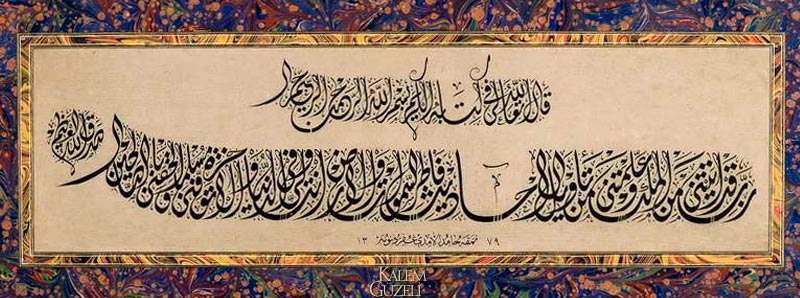 قال الله تعالى في كتابه الكريم بسم الله الرحمن الرحيم
رب قد آتيتني من الملك وعلمتني من تأويل الأحاديث فاطر السموات والأرض أنت وليي في الدنيا والآخرة توفني مسلما وألحقني بالصالحين
صدق الله العظيم
نمقه حامد الآمدي غفر ذنوبه ١٣٧٩
KALEM
GÜZELİ